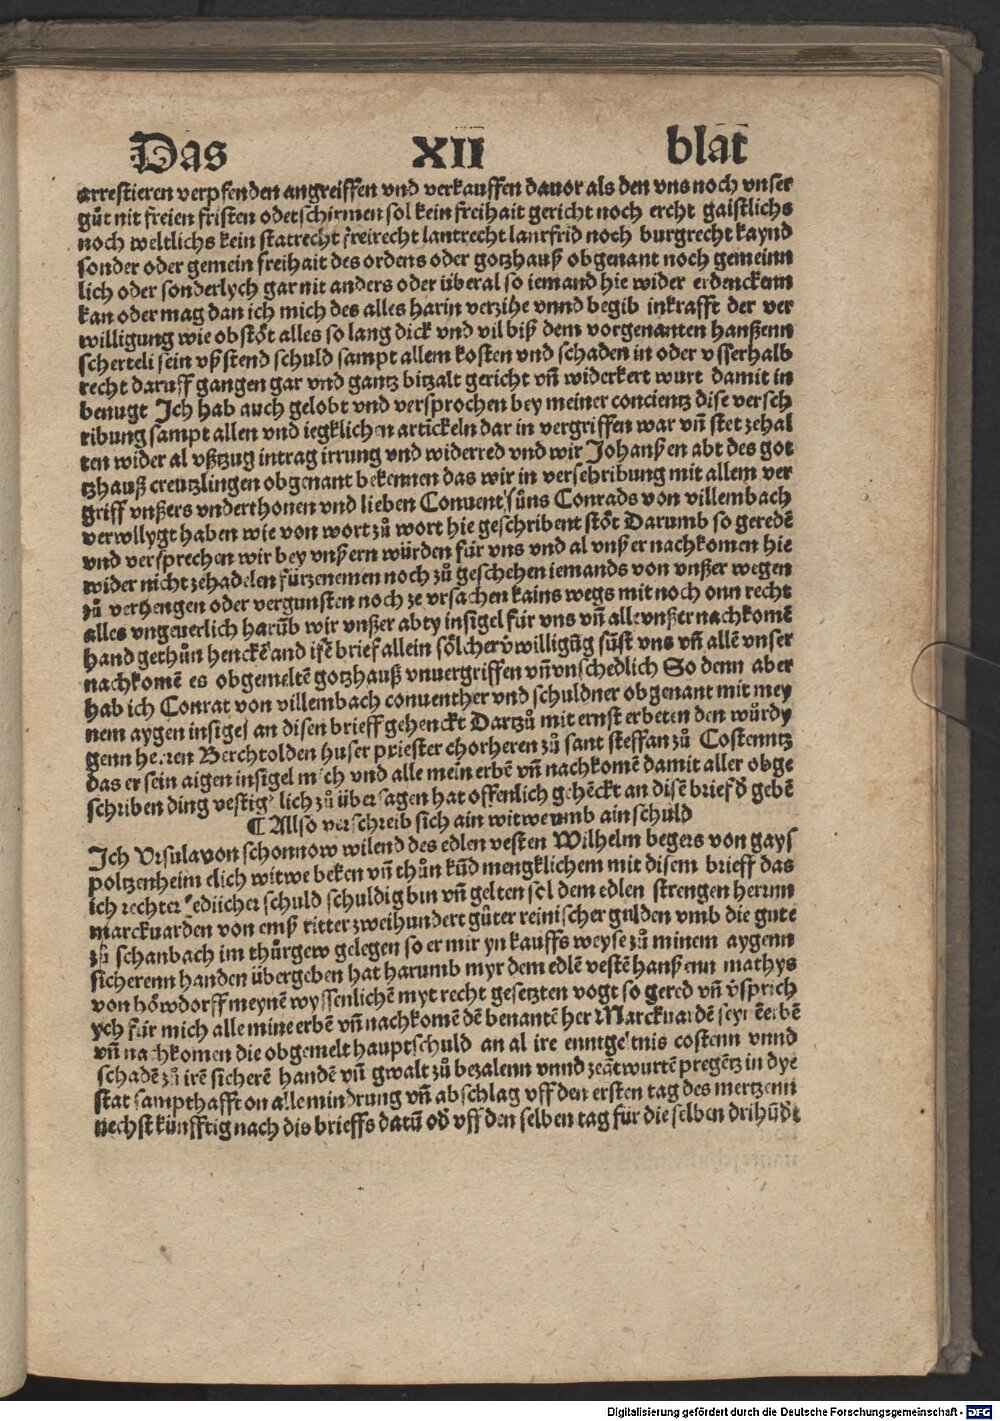 Das XII blat
arrestieren verpfenden angreiffen vnd verkauffen dauor als den vns noch vnser
gůt nit freien fristen odetschirmen sol kein freihait gericht noch ercht gaistlichs
noch weltlichs kein statrecht freirecht lantrecht lanrfrid noch burgrecht kaynd
sonder oder gemein freihait des ordens oder gotzhauß obgenant noch gemeinn
lich oder sonderlych gar nit anders oder überal so iemand hie wider erdenckenn
kan oder mag dan ich mich des alles harin verzihe vnnd begib inkrafft der ver
willigung wie obstöt alles so lang dick vnd vil biß dem vorgenanten hanßenn
scherteli sein vßstend schuld sampt allem kosten vnd schaden in oder vsserhalb
recht daruff gangen gar vnd gantz bitzalt gericht vn̄ widerkert wurt damit in
benugt Ich hab auch gelobt vnd versprochen bey meiner concientz dise versch
ribung sampt allen vnd iegklichen artickeln dar in vergriffen war vn̄ stet zehal
ten wider al vßtzug intrag irrung vnd widerred vnd wir Johanßen abt des got
tzhauß creutzlingen obgenant bekennen das wir in versehribung mit allem ver
griff vnßers vnderthonen vnd lieben Conuent sůns Conrads von villembach
verwllygt haben wie von wort zů wort hie geschribent stöt Darumb so geredē
vnd versprechen wir bey vnßern würden für vns vnd al vnßer nachkomen hie
wider nicht zehadelen fürzenemen noch zů geschehen iemands von vnßer wegen
zů verhengen oder vergunsten noch ze vrsachen kains wegs mit noch onn recht
alles vngeuerlich harūb wir vnßer abty insigel für vns vn̄ alle vnßer nachkomē
hand gethůn henckē and isē brief allein sölcher v̄willigūg sūst vns vn̄ allē vnser
nachkomē es obgemeltē gotzhauß vnuergriffen vn̄ vnschedlich So denn aber
hab ich Conrat von villembach conuenther vnd schuldner obgenant mit mey
nem aygen insigel an disen brieff gehenckt Dartzů mit ernst erbeten den würdy
genn herren Berchtolden huser priester chorheren zů sant steffan zů Costenntz
das er sein aigen insigel mich vnd alle mein erbē vn̄ nachkomē damit aller obge
schriben ding vestigklich zů über sagen hat offenlich gehēckt an disē brief d̄ gebē
⸿ Allso verschreib sich ain witwe vmb ain schuld
Ich Vrsula von schonnow wilend des edlen vesten Wilhelm begers von gays
poltzenheim elich witwe beken vn̄ thůn kūd mengklichem mit disem brieff das
ich rechter redlicher schuld schuldig bin vn̄ gelten sol dem edlen strengen herrnn
marckuarden von emß ritter zweihundert gůter reinischer gulden vmb die gute
zů schanbach im thůrgew gelegen so er mir yn kauffs weyse zů minem aygenn
sicherenn handen übergeben hat harumb myr dem edlē vestē hanßenn mathys
von höwdorff meynē wyssenlichē myt recht gesetzten vogt so gered vn̄ v̄sprich
ych für mich alle mine erbē vn̄ nachkomē dē benantē her Marckuardē seynē erbē
vn̄ nachkomen die obgemelt hauptschuld an al ire enntgeltnis costenn vnnd
schadē zů irē sicherē handē vn̄ gwalt zů bezalenn vnnd zeātwurtē pregētz in dye
stat sampthafft on alle mindrung vn̄ abschlag vff den ersten tag des mertzenn
nechst künfftig nach dis brieffs datū od̄ vff den selben tag für die selben drihūdt
Digitalisierung gefördert durch die Deutsche Forschungsgemeinschaft - DFG